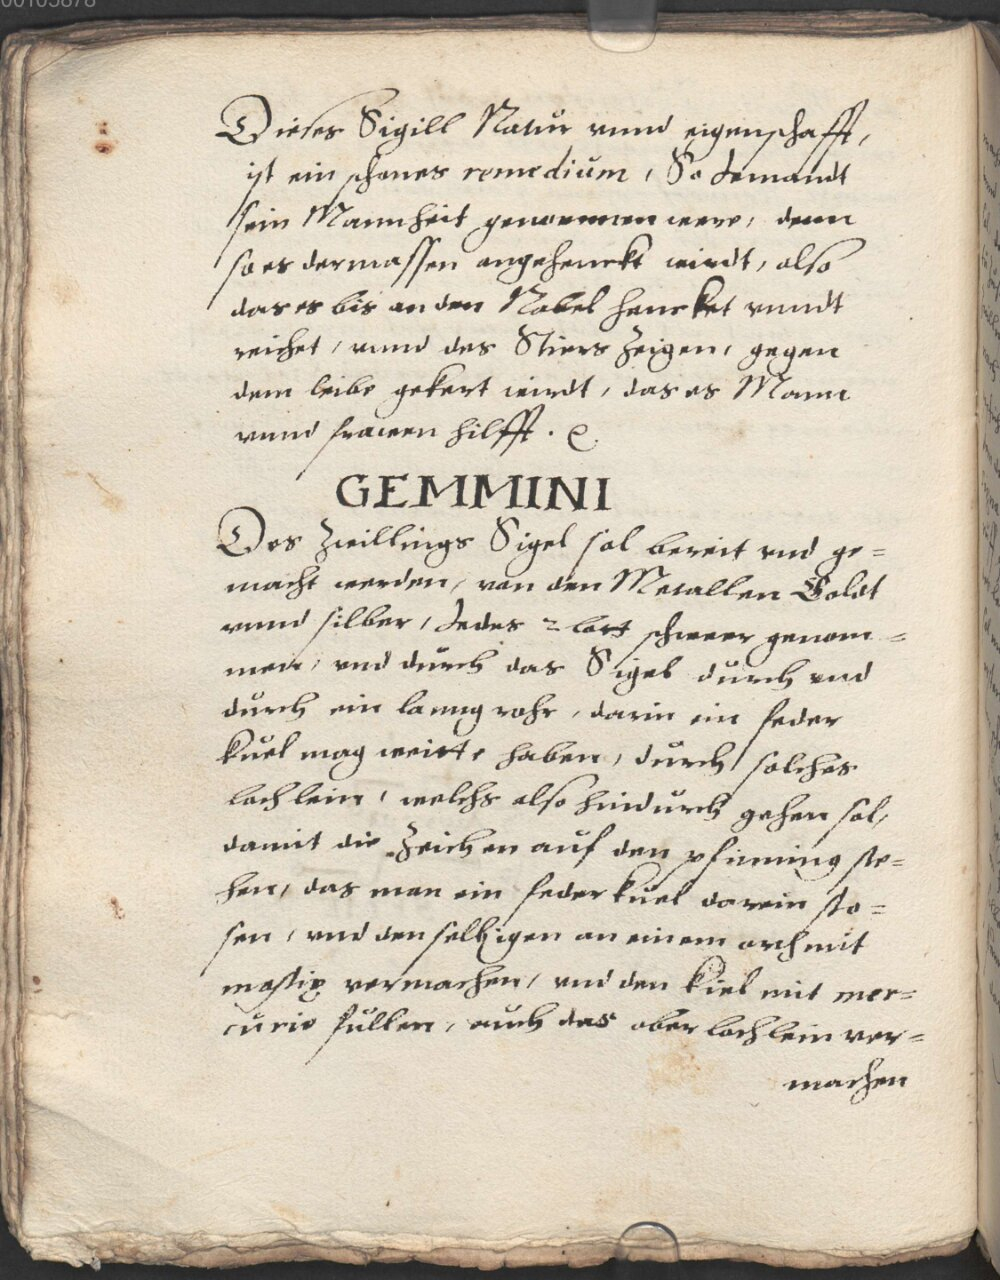 00105878
Dieses Sigill Natur vnnd eigenschafft,
ist ein schones remedium, So Jemandt
sein Mannheit genommen were, denn
so es dermassen angehenckt wirdt, also
das es bis an den Nabel hencket vnndt
reichet, vnnd des Stiers Zeigen, gegen
dem leibe gekert wirdt, das es Mann
vnnd frawen hilfft.
GEMMINI
Des Zwillings Sigel sol bereit vnd ge=
macht werden, von den Metallen Goldt
vnnd silber, Jedes 2 lott schwer genom=
men, vnd durch das Sigel durch vnd
durch ein lanng rohr, darin ein feder
kuel mag weitte haben, durch solches
lochlein, welchs also hindurch gehen sol,
damit die Zeichen auf den pfinning ste=
hen, das man ein federkuel darein sto=
sen, vnd denselbigen an einem orth mit
mastix vermachen, vnd den kiel mit mer=
curio fullen, auch das ober lochlein ver=
machen